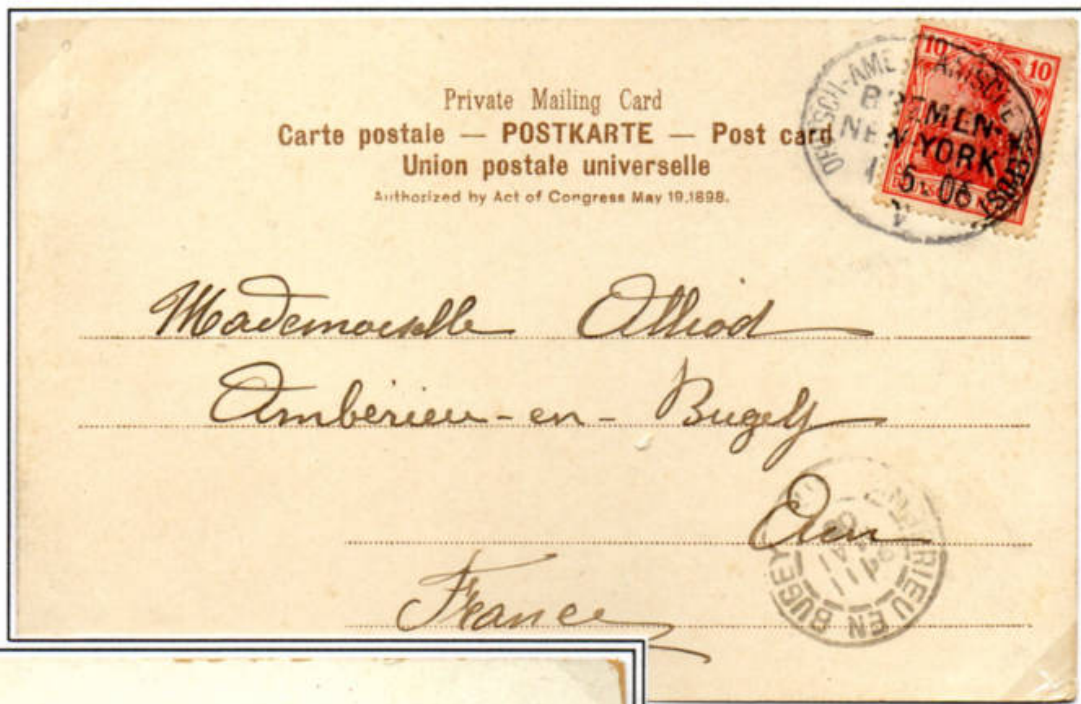 Private Mailing Card
Carte postale — POSTKARTE — Post card
Union postale universelle
Authorized by Act of Congress May 19.1898.
10 10
BREMEN-
NEW YORK
5. 06
V
Mademoiselle Alliod
Ambérieu-en-Bugey
Ain
France
RIEU EN BUGEY